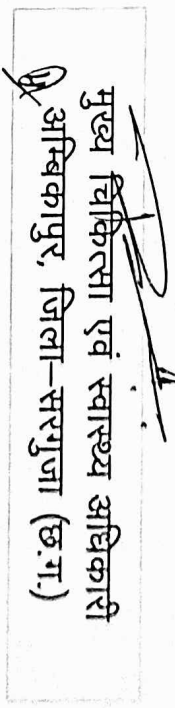 मुख्य चिकित्सा एवं स्वास्थ्य अधिकारी
अम्बिकापुर, जिला-सरगुजा (छ.ग.)